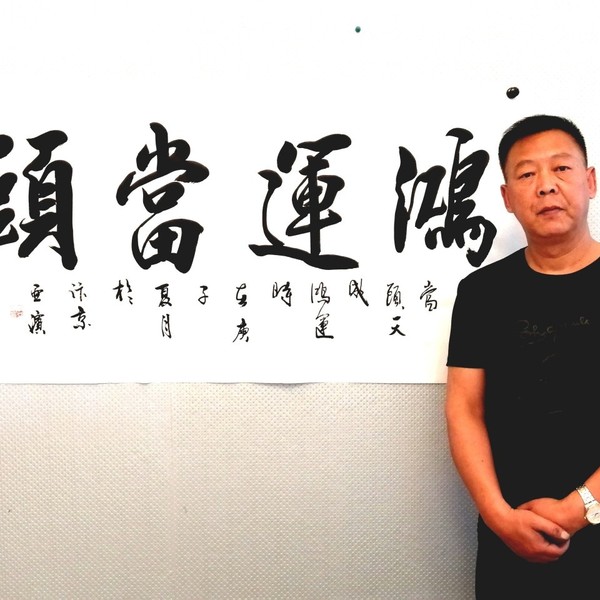 鴻運當頭
當
頭天
成
鴻運
時
在庚
子
夏月
於
汴京
亞濱